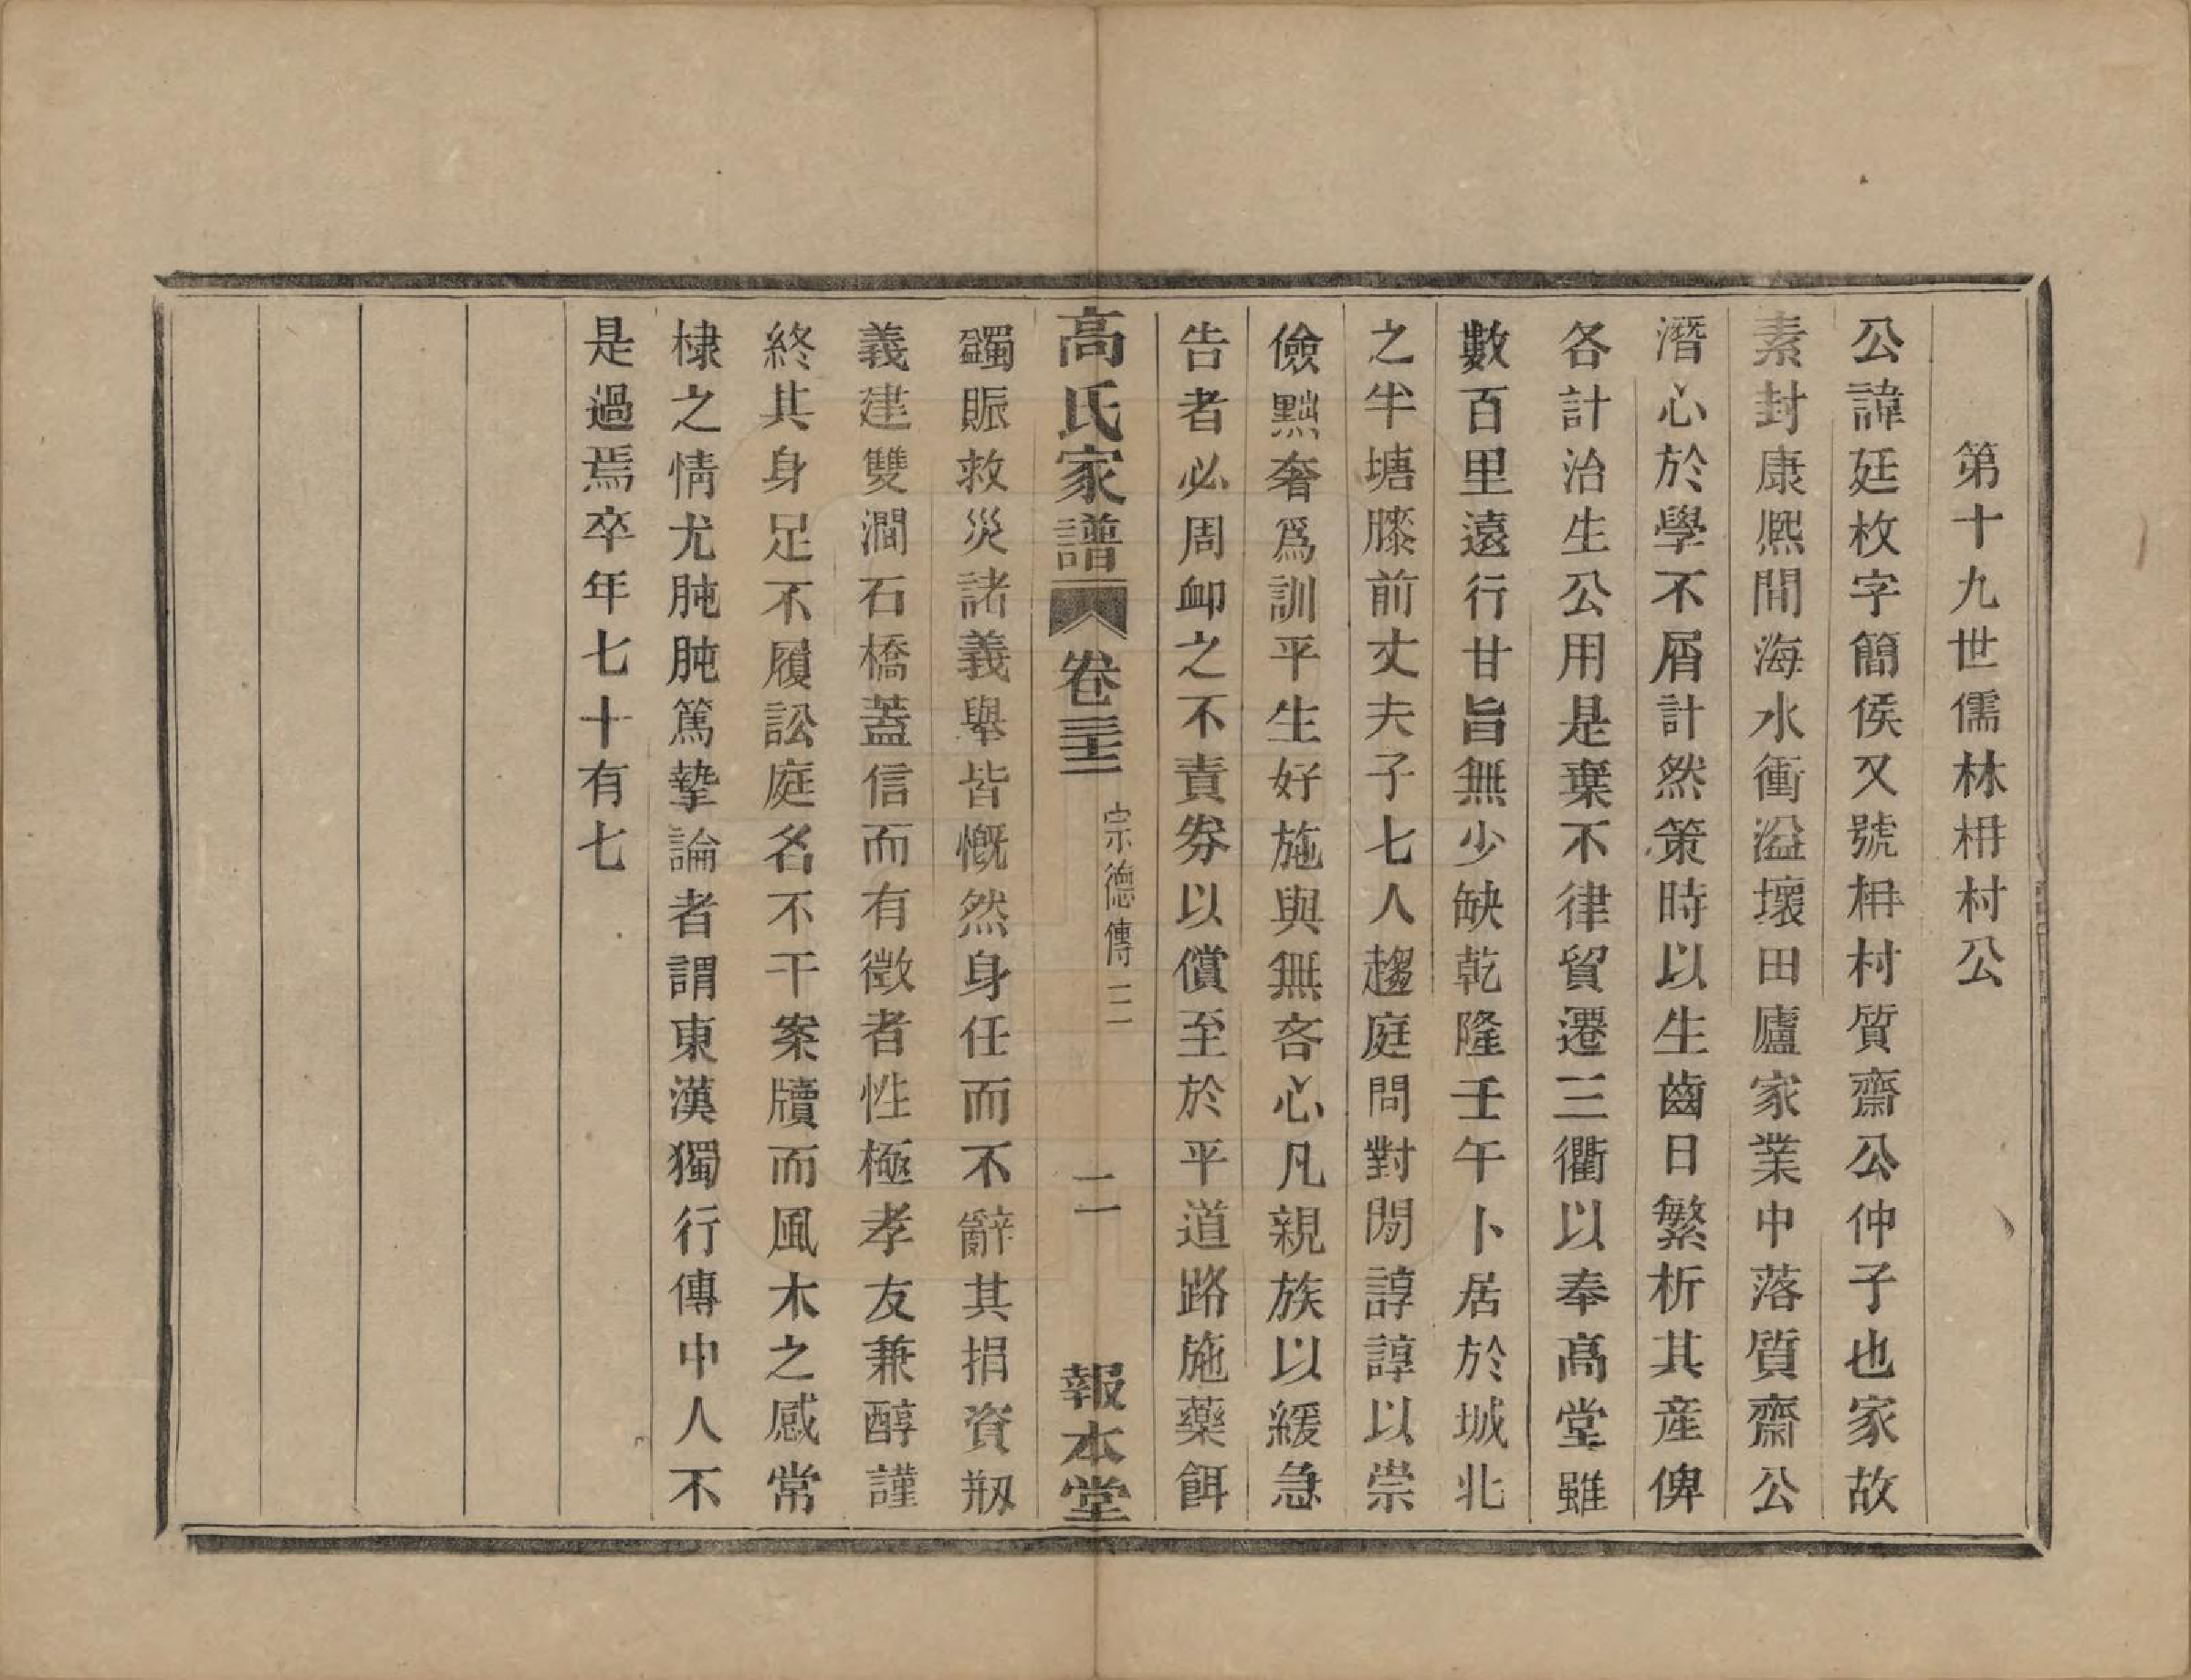 第十九世儒林枏村公
公諱廷枚字簡侯又號枏村質齋公仲子也家故
素封康熈間海水衝溢壞田廬家業中落質齋公
潛心於學不屑計然策時以生齒日繁析其產俾
各計治生公用是棄不律貿遷三衢以奉高堂雖
數百里遠行甘旨無少缺乾隆壬午卜居於城北
之半塘膝前丈夫子七人趨庭問對閒諄諄以崇
儉黜奢爲訓平生好施與無吝心凡親族以緩急
告者必周卹之不責券以償至於平道路施藥餌
蠲賑救災諸義舉皆慨然身任而不辭其捐資剏
義建雙澗石橋蓋信而有徵者性極孝友兼醇謹
終其身足不履訟庭名不干案牘而風木之感常
棣之情尤肫肫篤摯論者謂東漢獨行傳中人不
是過焉卒年七十有七
高氏家譜 卷三十二 宗德傳三 二 報本堂